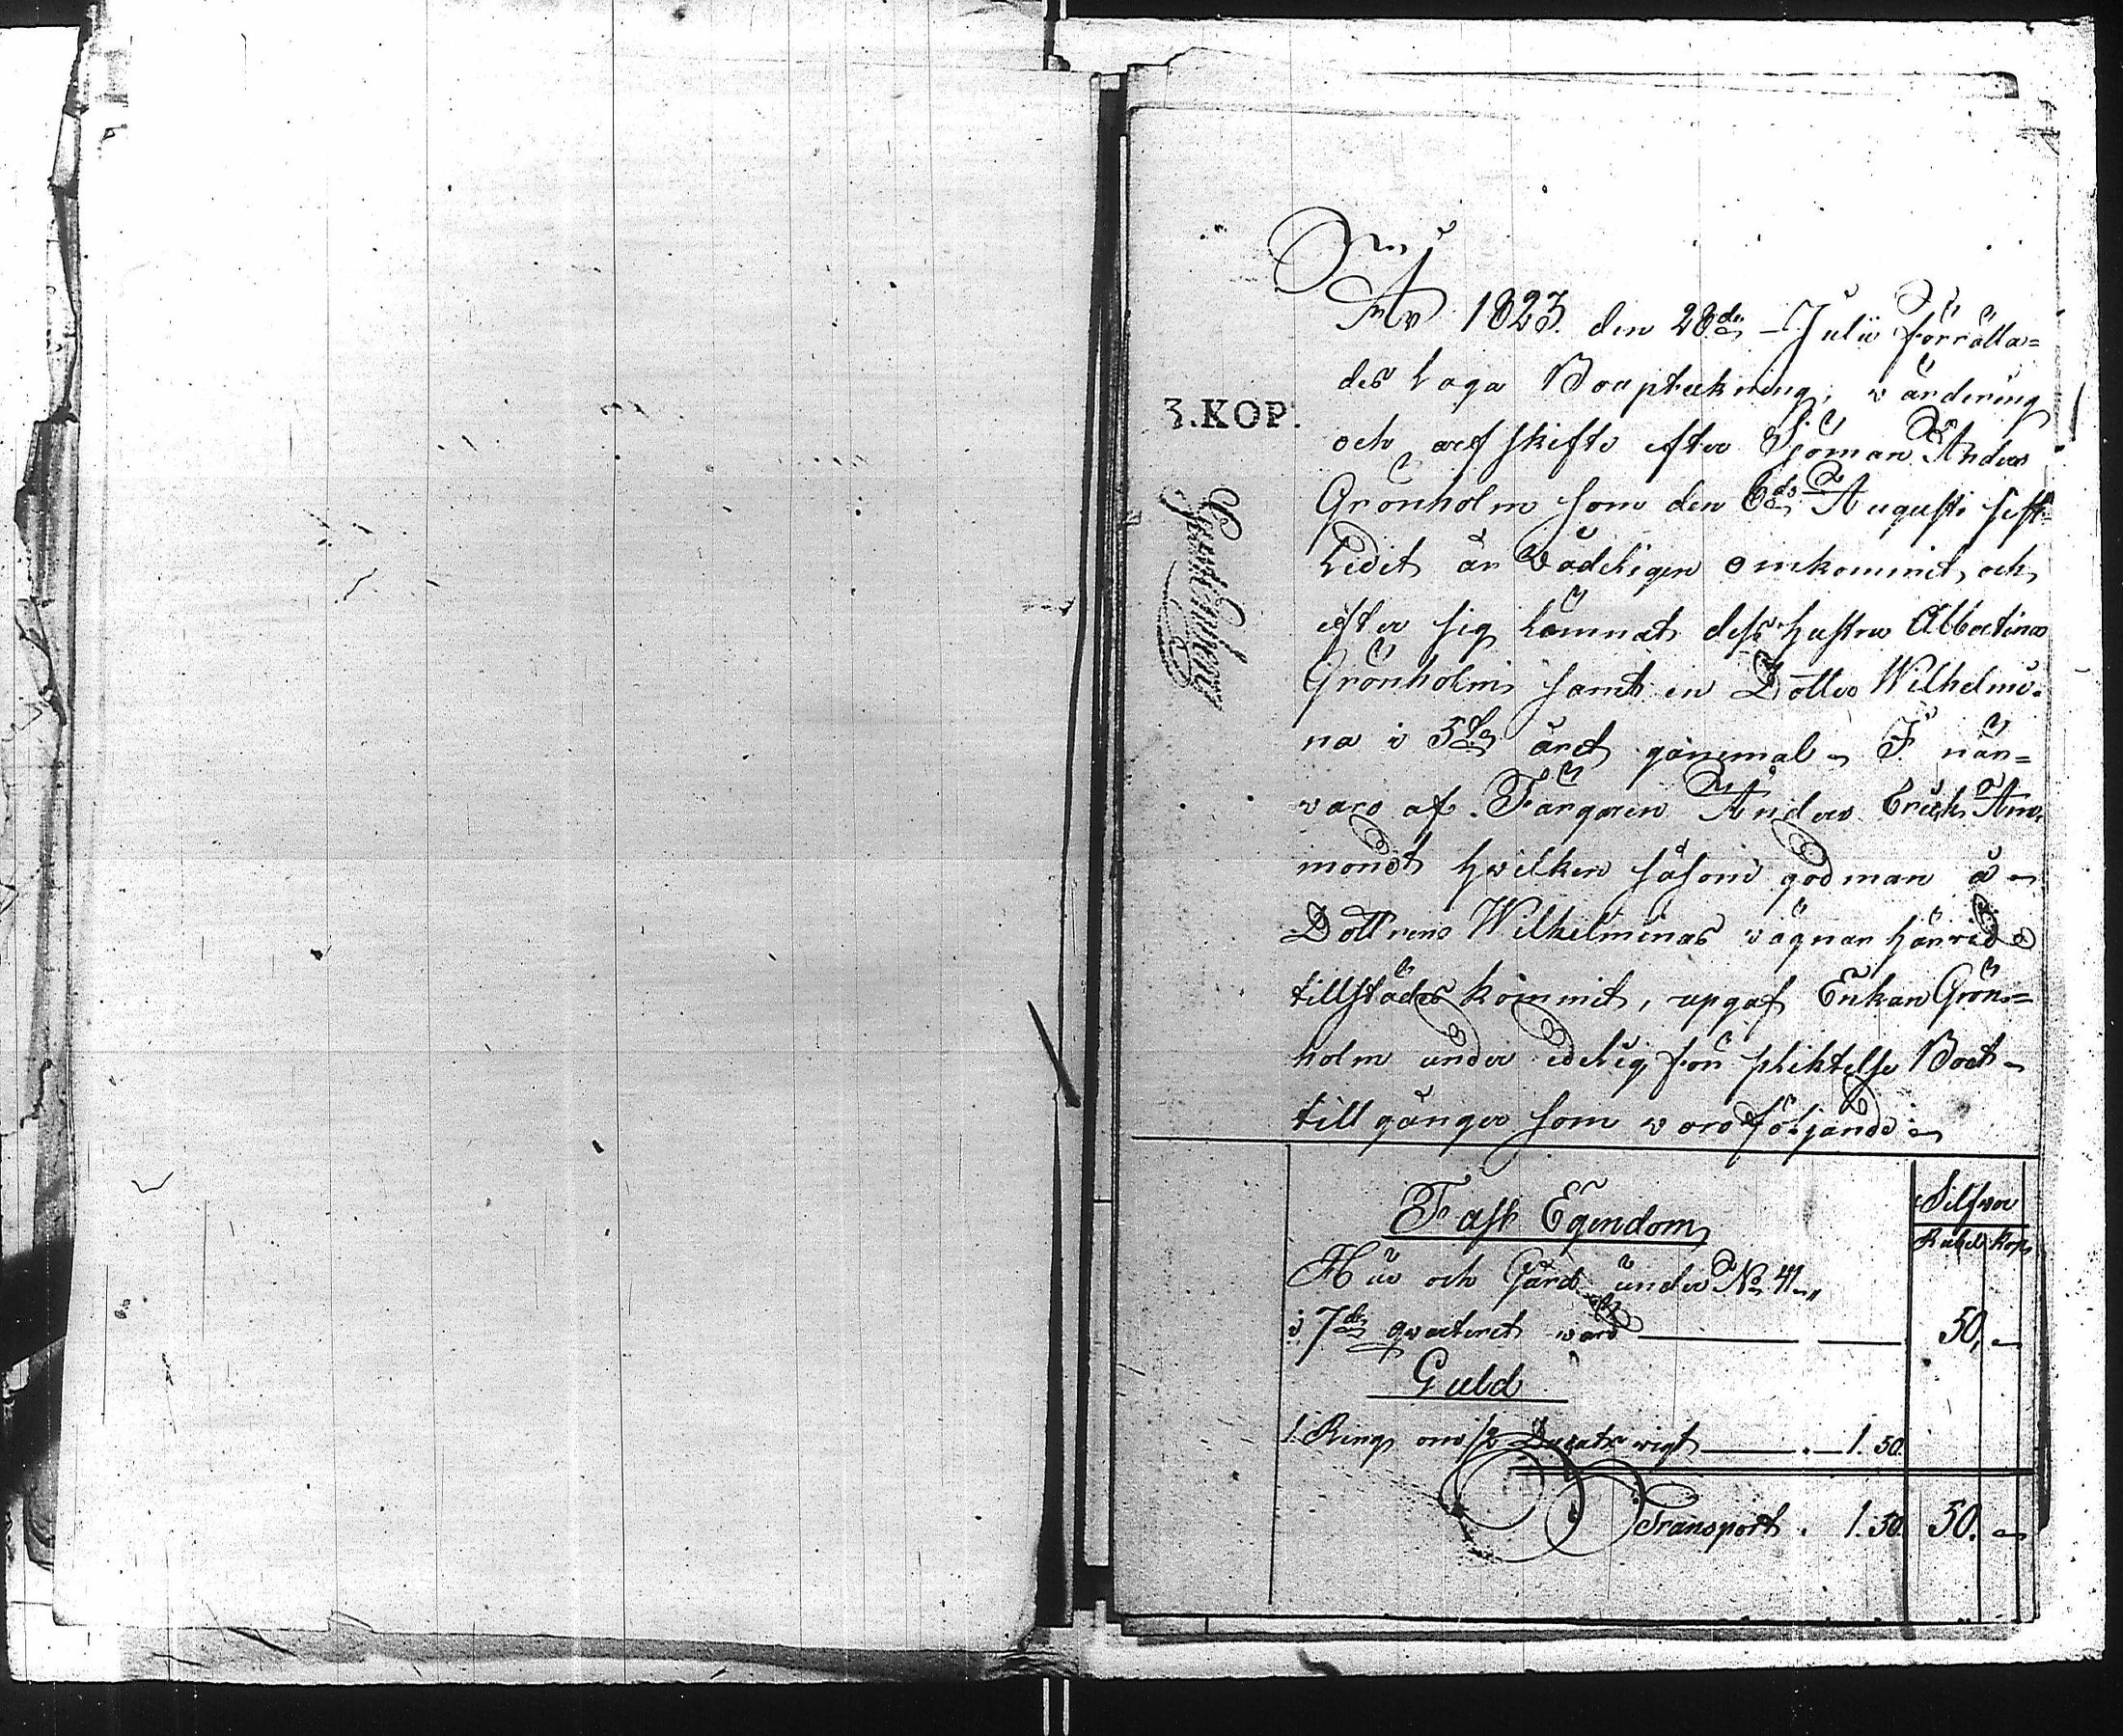 År 1823. den 28de Julii förrätta=
des laga Bouptekning, värdering
3.KOP.
och arfskifte efter Sjöman Anders
Grönholm som den 6de Augusti sist=
ledit år vådeligen omkommit, och
efter sig lämnat dess hustru Albertina
Grönholm samt en Dotter Wilhelmi=
na i 5te året gammal. I när=
varo af Färgaren Anders Erich Am=
mondt hvilken såsom god man å
Dottrens Wilhelminas vägnar härvid
tillstädes kommit, upgaf Enkan Grön=
holm under edelig förpliktelse Boets
tillgångar som voro följande:
Silfver
Fast Egendom
Rubel Kop.
Hus och Gård under No 41.
i 7de qvarteret värd 50,
Guld
1 Ring om 1/2 Ducats vigt 1.50.
Transport. 1.50. 50.